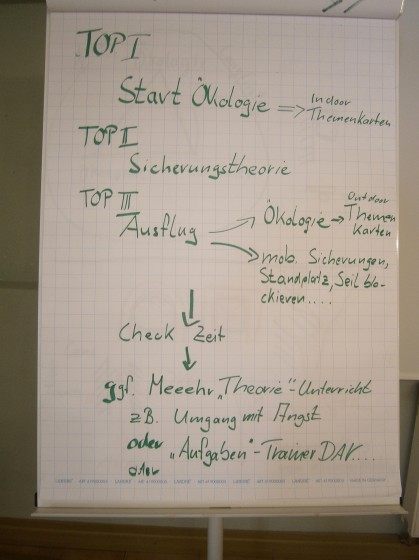 TOP I
Start Ökologie => Indoor
Themenkarten
TOP II
Sicherungstheorie
TOP III
Ausflug → Ökologie → Outdoor
Themen
karten
→ mob. Sicherungen,
Standplatz, Seil blo-
ckieren....
Check Zeit
ggf. Meeehr „Theorie"-Unterricht
zB. Umgang mit Angst
oder „Aufgaben"-Trainer DAV....
oder